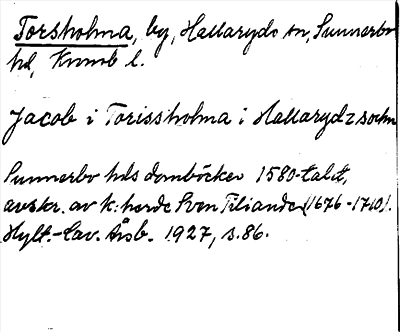 Torsholma, by, Hallaryds sn, Sunnerbo
hd, Kronob l.
Jacob i Torissholma i Hallarydz sochn
Sunnerbo hds domböcker 1580-talet,
avskr. av k:herde Sven Tiliander (1676-1710).
Hylt.-Cav. Årsb. 1927, s. 86.